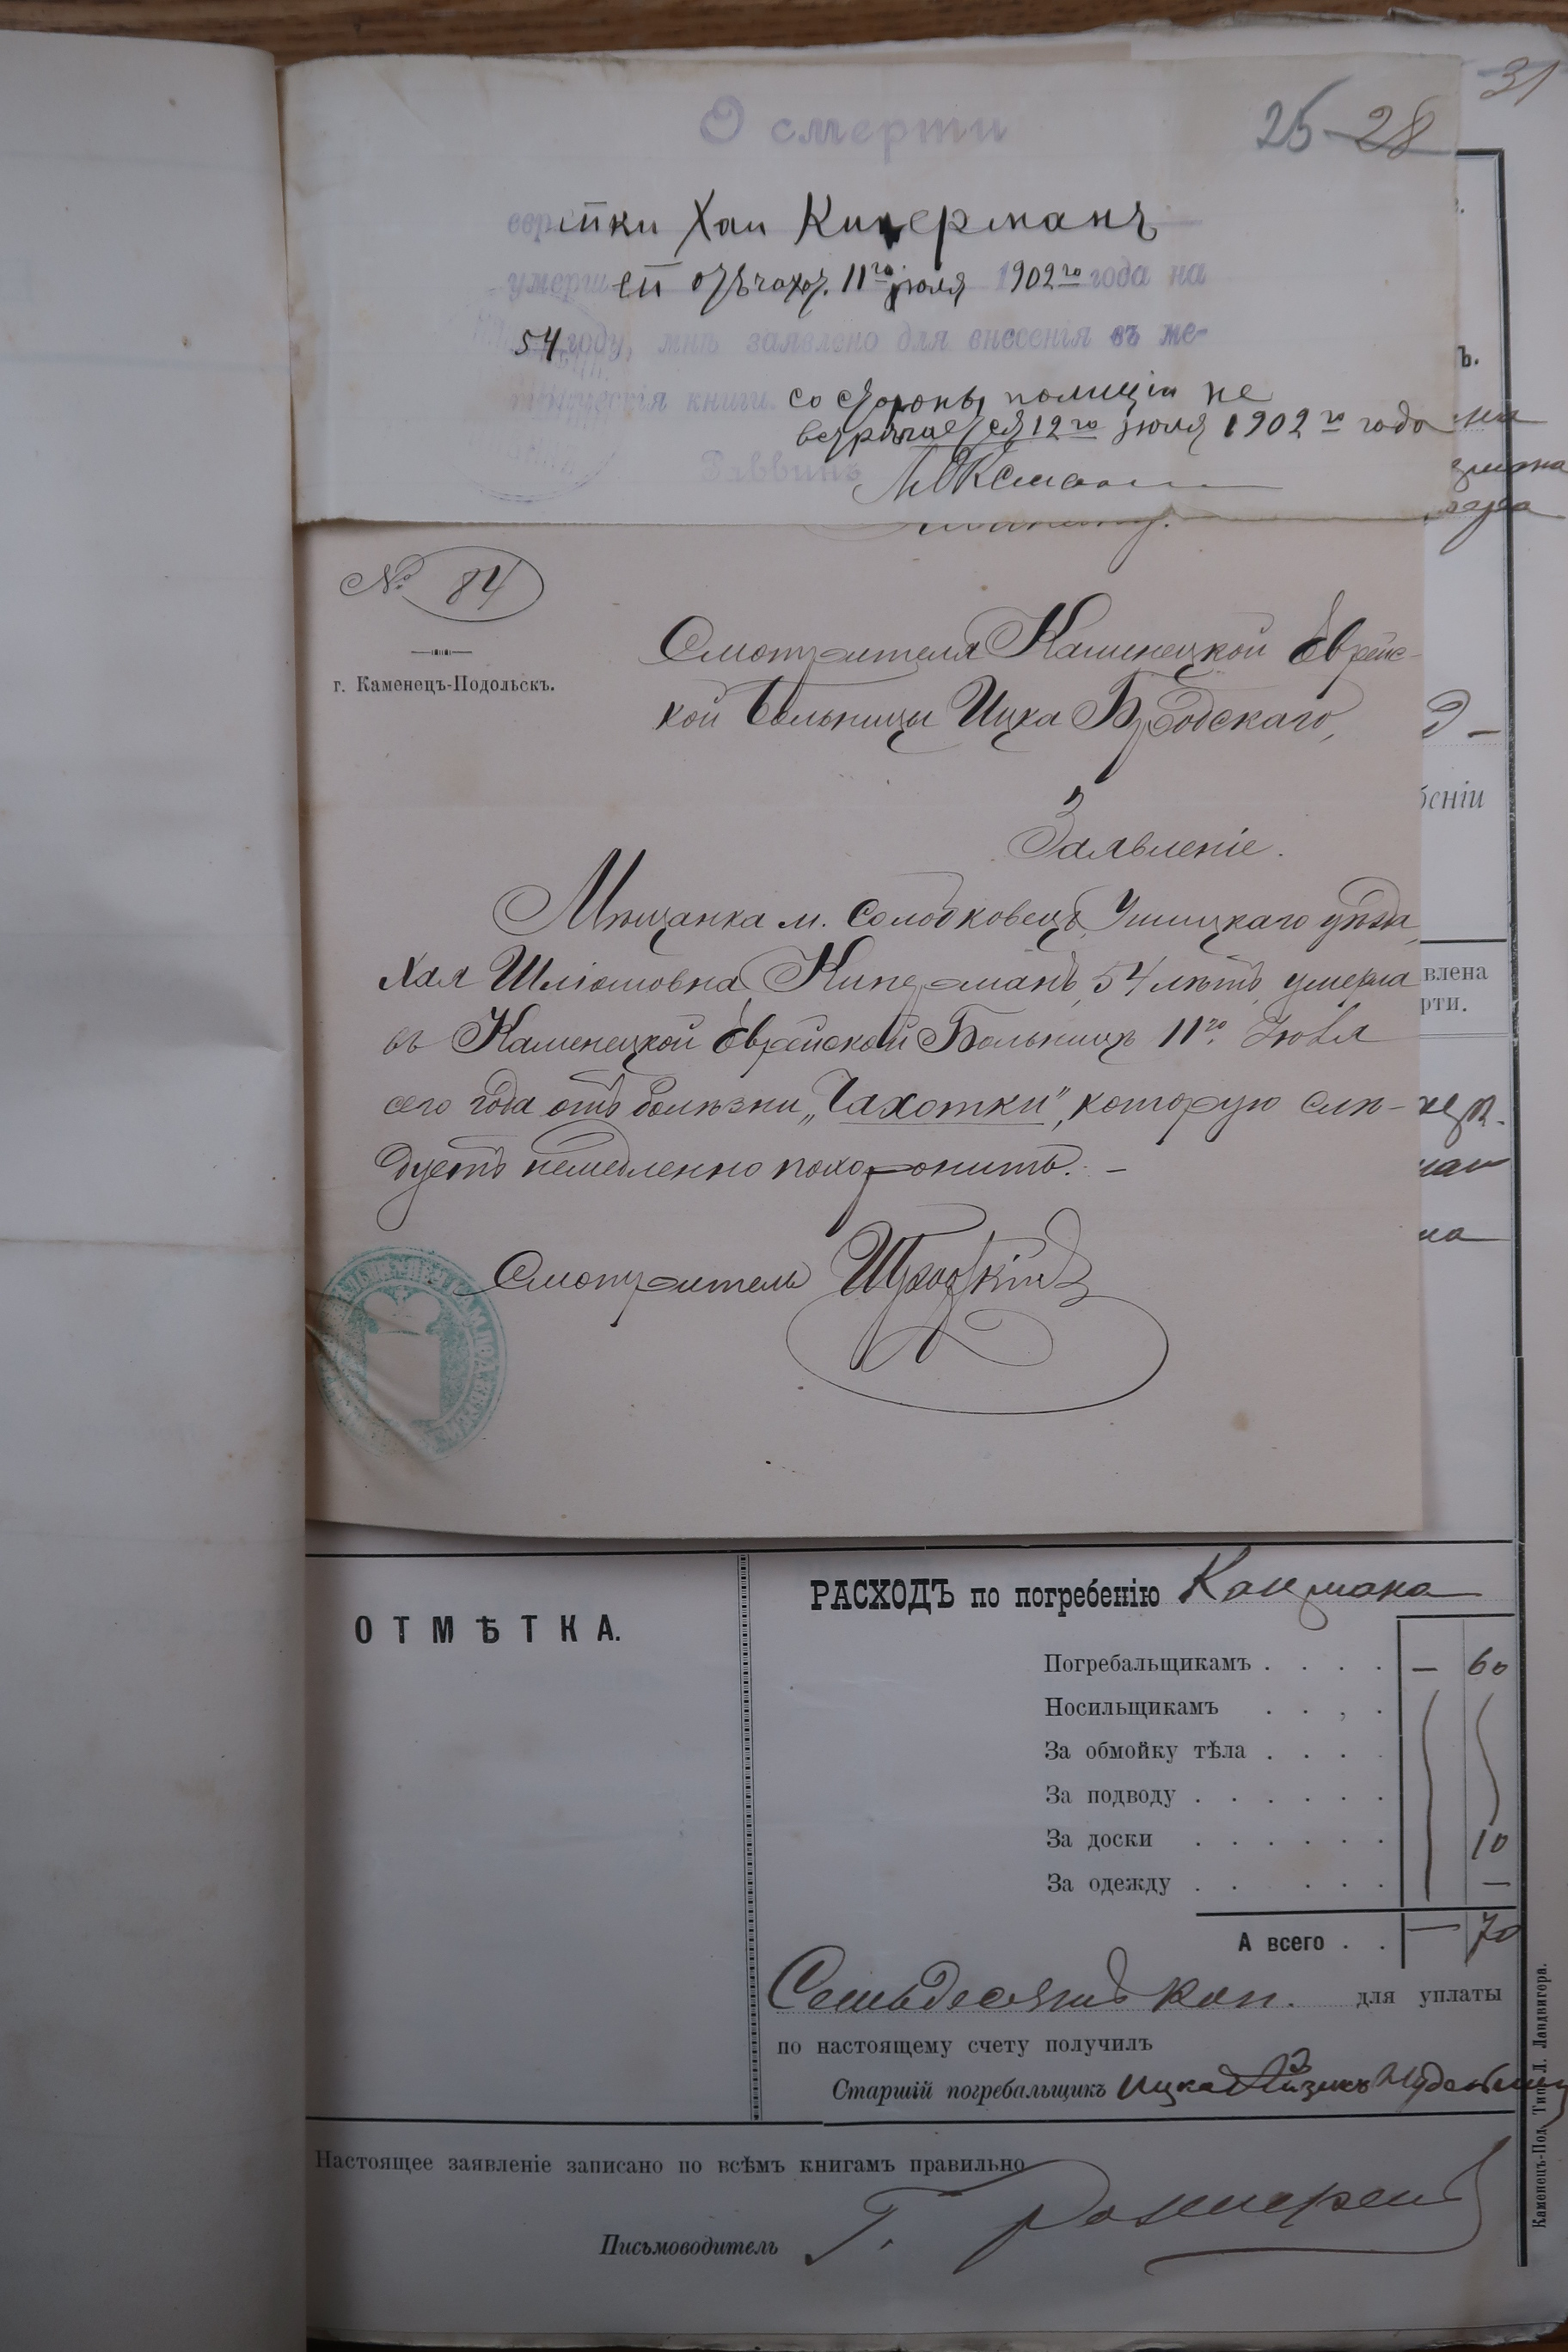 31
25-28
О смерти
еврейки Хаи Киперманъ
умершей отъ чахот. 11го юля 1902го года на
54 году, мнѣ заявлено для внесенія въ ме-
трическія книги. со стороны полиціи не
встрѣчается 12го июля 1902го года
Раввинъ
№ 84
г. Каменецъ-Подольскъ.
Смотрителя Каменецкой Еврейс-
кой Больницы Ицка Бродскаго,
Заявленіе.
Мѣщанка м. Солобковецъ, Ушицкаго уѣзда,
Хая Шліомовна Киперманъ, 54 лѣтъ, умерла
въ Каменецкой Еврейской Больницѣ 11го Іюля
сего года отъ болѣзни „Чахотки", которую слѣ-
дуетъ немедленно похоронить. –
Смотритель
ъ.
бенiи
влена
рти.
ОТМѢТКА.
РАСХОДЪ по погребенію Кацмана
Погребальщикамъ . . . . — 60
Носильщикамъ . . , .
За обмойку тѣла . . . .
За подводу . . . . . .
За доски . . . . . . 10
За одежду . . . . . . —
А всего . . — 70
Семьдесятъ коп. для уплаты
по настоящему счету получилъ
Старшій погребальщикъ Ицка Айзикъ
Настоящее заявленіе записано по всѣмъ книгамъ правильно
Письмоводитель Г.
Каменецъ-Под. Тип. Л. Ландвигера.